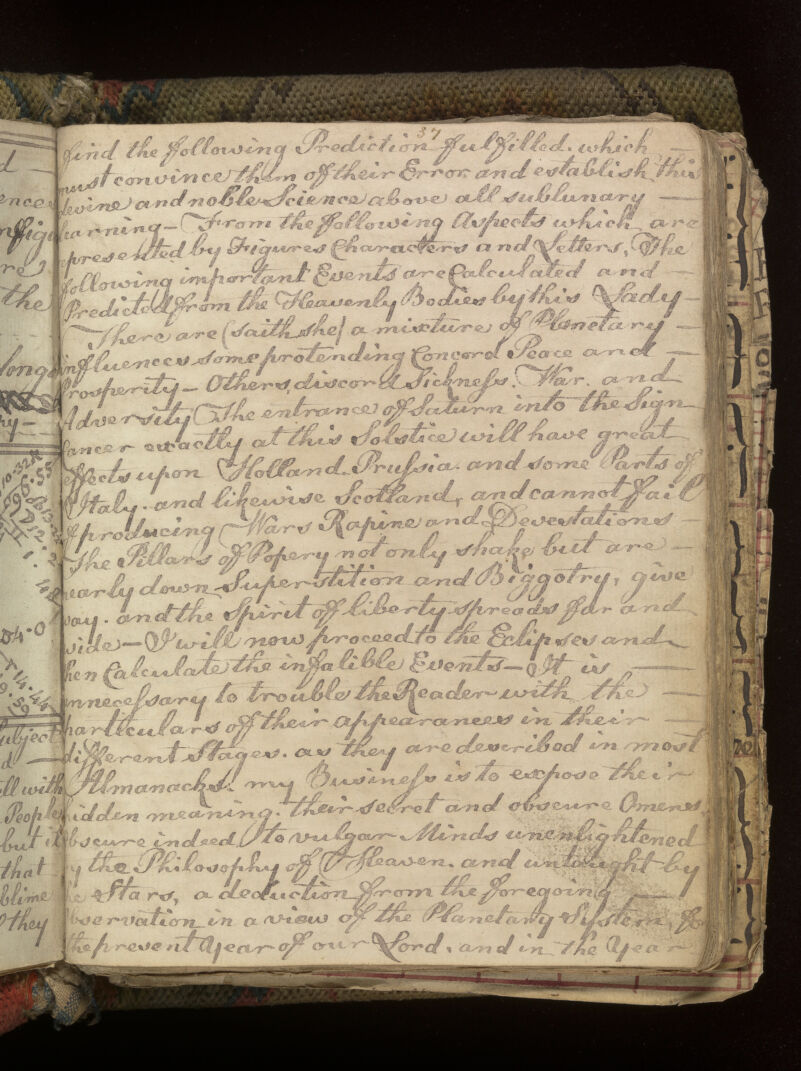 37
find the following Prediction fulfilled. which —
must convince them of their Error and establish this
devine and noble Science above all sublunary —
learning – From the following Aspects which are
represented by Figures Characters and Letters, The
following important Events are Calculated and —
Predicted from the Heavenly Bodies by this Lady –
There are (saith she) a mixture of Planetary –
influences some protending Concord Peace and —
Prosperity – Others, discord Sickness. War. and
Adversity The entrance of Saturn into the Sign
Cancer exactly at this Solstice will have great
effects upon Holland. Prussia. and some Parts of
Italy. and likewise Scotland, and cannot fail
of producing Wars Rapine and Devestations –
The Pillars of Popery not only shake but are –
nearly down Superstition and Biggotry, give
way. and the Spirit of liberty spreads far and
wide – I will now proceed to the Eclipses and
then Calculate the infalible Events – It is —
unnecessary to trouble the Reader with the —
particulars of their appearances in their —
different Stages. as they are described in most
Almanacks. my Business is to expose their
hidden meaning. their secret and obscure Omens
obscure indeed, to vulgar Minds unenlightened
by the Philosophy of Heaven. and untaught by
the Stars, a deduction from the foregoing —
observation in a view of the Planetary System, for
the present Year of our Lord. and in the Year